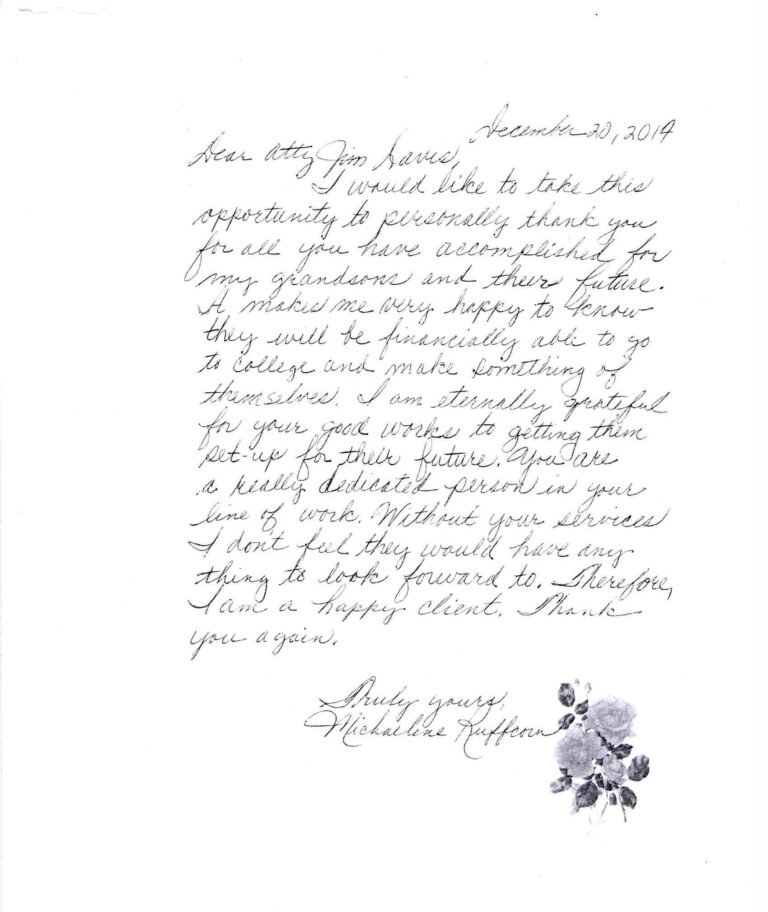 December 20, 2014
Dear Atty Jim Davis,
I would like to take this
opportunity to personally thank you
for all you have accomplished for
my grandsons and their future.
It makes me very happy to know
they will be financially able to go
to college and make something of
themselves. I am eternally grateful
for your good works to getting them
set-up for their future. You are
a really dedicated person in your
line of work. Without your services
I don't feel they would have any
thing to look forward to. Therefore,
I am a happy client. Thank
you again.
Truly yours,
Michaelene Ruffcorn